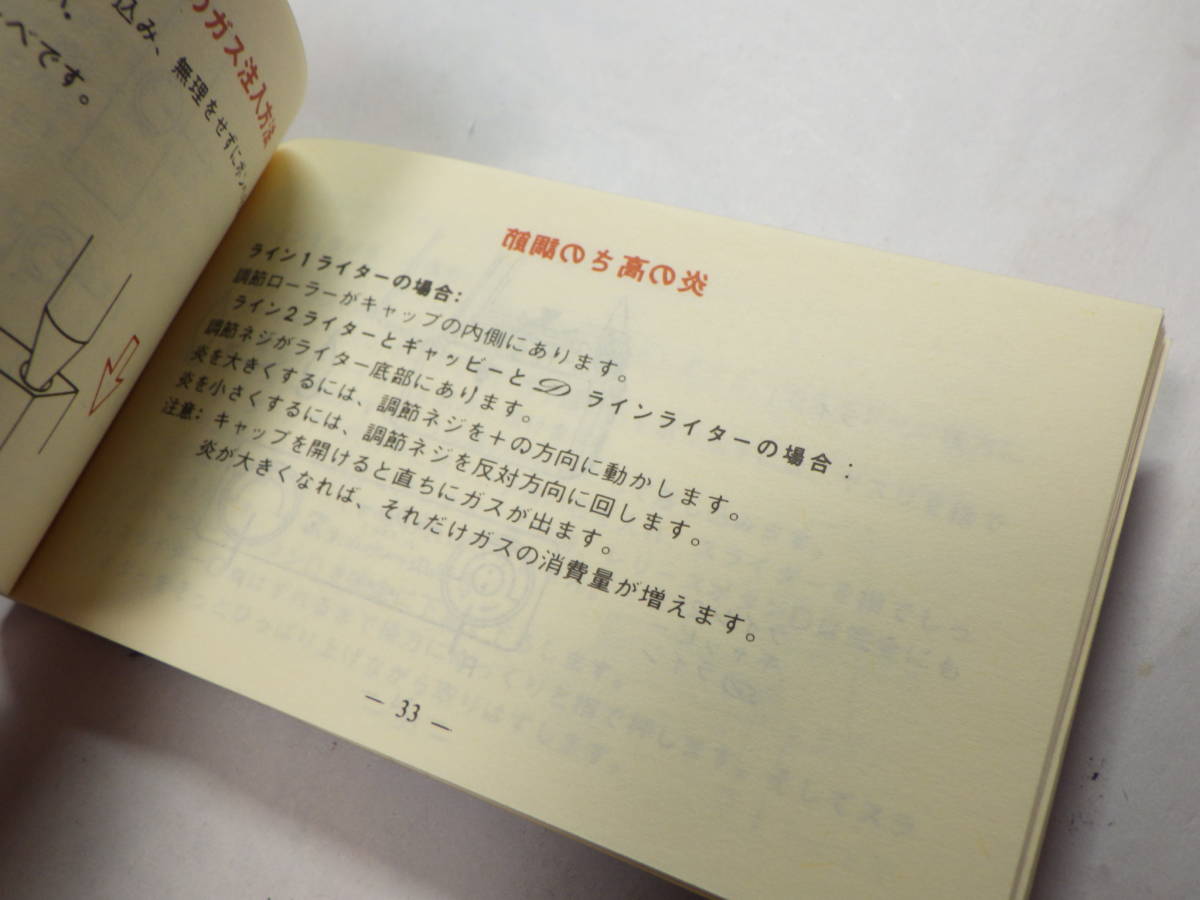 のガス注入方法
込み、無理をせずに
べです。
炎の高さの調節
ライン1ライターの場合:
調節ローラーがキャップの内側にあります。
ライン2ライターとギャッビーとD ラインライターの場合:
調節ネジがライター底部にあります。
炎を大きくするには、調節ネジを+の方向に動かします。
炎を小さくするには、調節ネジを反対方向に回します。
注意:キャップを開けると直ちにガスが出ます。
炎が大きくなれば、それだけガスの消費量が増えます。
— 33 —